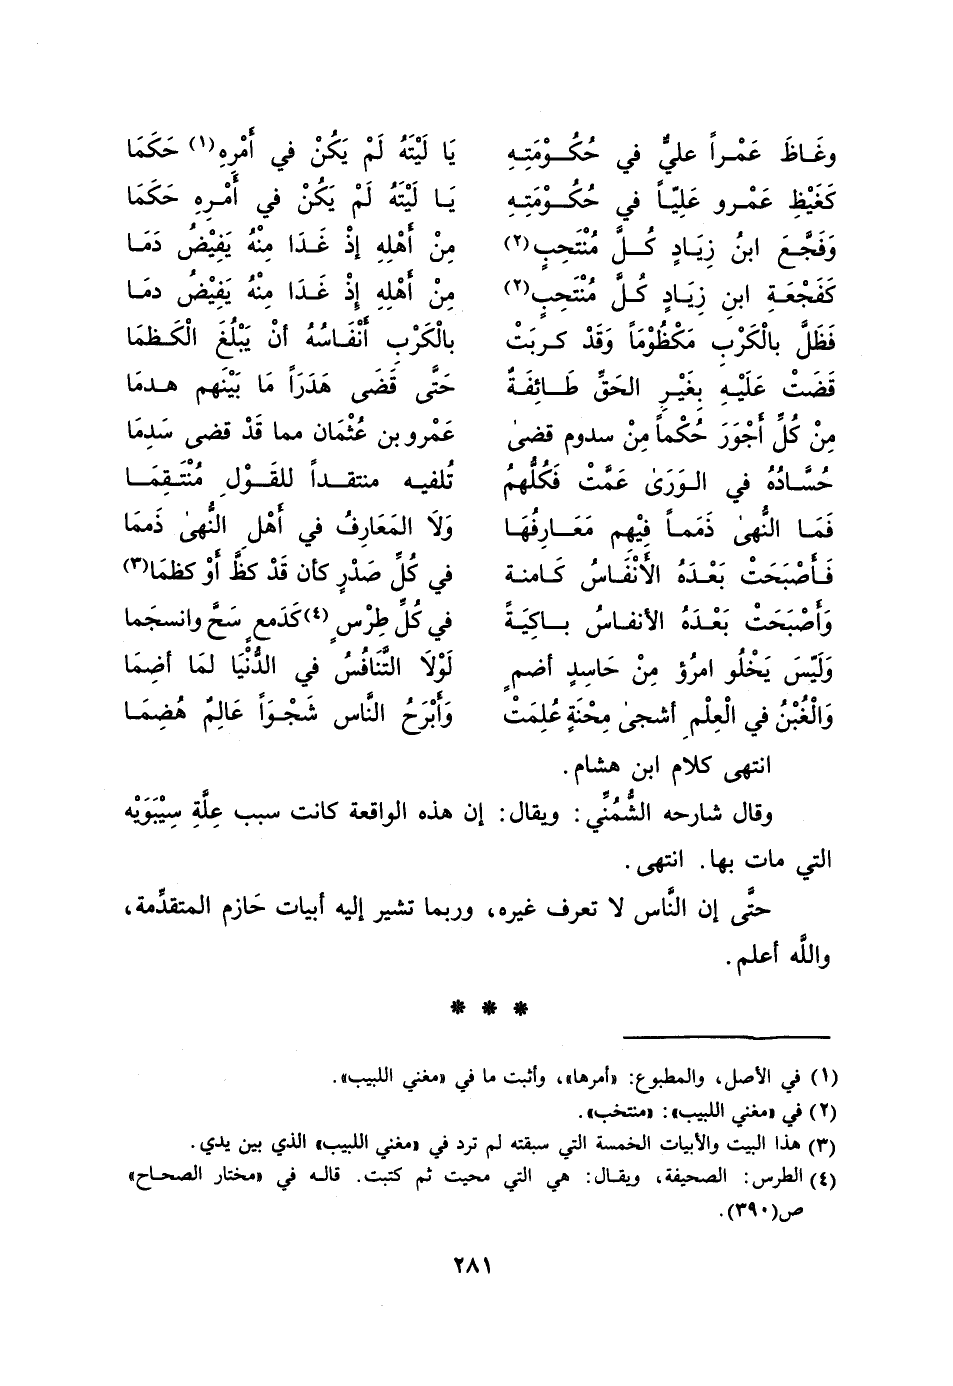 وغَـاظَ عَمْـراً عليٌّ في حُكُـومَتِـهِ يَا لَيْتَهُ لَمْ يَكُنْ في أَمْرِهِ(١) حَكَمَا
كَغَيْظِ عَمْـرو عَلِيّـاً في حُكُـومَتِـهِ يَـا لَيْتَهُ لَمْ يَكُنْ في أَمْـرِهِ حَكَمَا
وَفَجَّـعَ ابنُ زِيَـادٍ كُــلَّ مُنْتَحِبٍ(٢) مِنْ أَهْلِهِ إذْ غَـدَا مِنْهُ يَفِيْضُ دَمَـا
كَفَجْعَـةِ ابنِ زِيَـادٍ كُلَّ مُنْتَحِبٍ(٢) مِنْ أَهْلِهِ إِذْ غَـدَا مِنْهُ يَفِيْضُ دمَـا
فَظَلَّ بالْكَرْبِ مَكْظُوْمَاً وَقَدْ كـربَتْ بالْكَرْبِ أَنْفَـاسُهُ أنْ يَبْلُغَ الْكَـظمَا
قَضَتْ عَلَيْـهِ بِغَيْـرِ الحَقِّ طَـائِفَـةٌ حَتَّى قَضَى هَدَرَاً مَا بَيْنَهم هـدمَا
مِنْ كُلِّ أَجْوَرَ حُكْماً مِنْ سدوم قضىٰ عَمْرو بن عُثْمَان مما قَدْ قضى سَدِمَا
حُسَّـادُهُ في الـوَرَىٰ عَمَّتْ فَكُلُّهمُ تُلفيـه منتقـداً للقَـوْلِ مُنْتَـقِمَـا
فَمَـا النُّهىٰ ذَمَمـاً فِيْهم مَعَـارِفُهَـا وَلَا المَعَارِفُ في أَهْلِ النُّهىٰ ذَممَا
فَـأَصْبَحَتْ بَعْـدَهُ الأَنْفَـاسُ كَـامنـة في كُلِّ صَدْرٍ كأن قَدْ كظَّ أَوْ كظمَا(٣)
وَأَصْبَحَتْ بَعْـدَهُ الأنفـاسُ بـاكِيَـةً في كُلِّ طِرْسٍ(٤) كَدَمعٍ سَحَّ وانسجَما
وَلَيْسَ يَخْلُو امرُؤ مِنْ حَاسِدٍ أضمٍ لَوْلَا التَّنَافُسُ في الدُّنْيَا لمَا أضِمَا
وَالْغُبْنُ في الْعِلْمِ أشجىٰ مِحْنَةٍ عُلِمَتْ وَأَبْرَحُ النَّاس شَجْـوَاً عَالِمٌ هُضِمَـا
انتهى كلام ابن هشام.
وقال شارحه الشُّمُنِّي: ويقال: إن هذه الواقعة كانت سبب عِلَّةِ سِيْبَوَيْه
التي مات بها. انتهى.
حتَّى إن النَّاس لا تعرف غيره، وربما تشير إليه أبيات حَازم المتقدِّمة،
واللَّه أعلم.
* * *
(١) في الأصل، والمطبوع: «أمرها»، وأثبت ما في «مغني اللبيب».
(٢) في «مغني اللبيب»: «منتخب».
(٣) هذا البيت والأبيات الخمسة التي سبقته لم ترد في «مغني اللبيب» الذي بين يدي.
(٤) الطرس: الصحيفة، ويقـال: هي التي محيت ثم كتبت. قالـه في «مختار الصحـاح»
ص(٣٩٠).
٢٨١